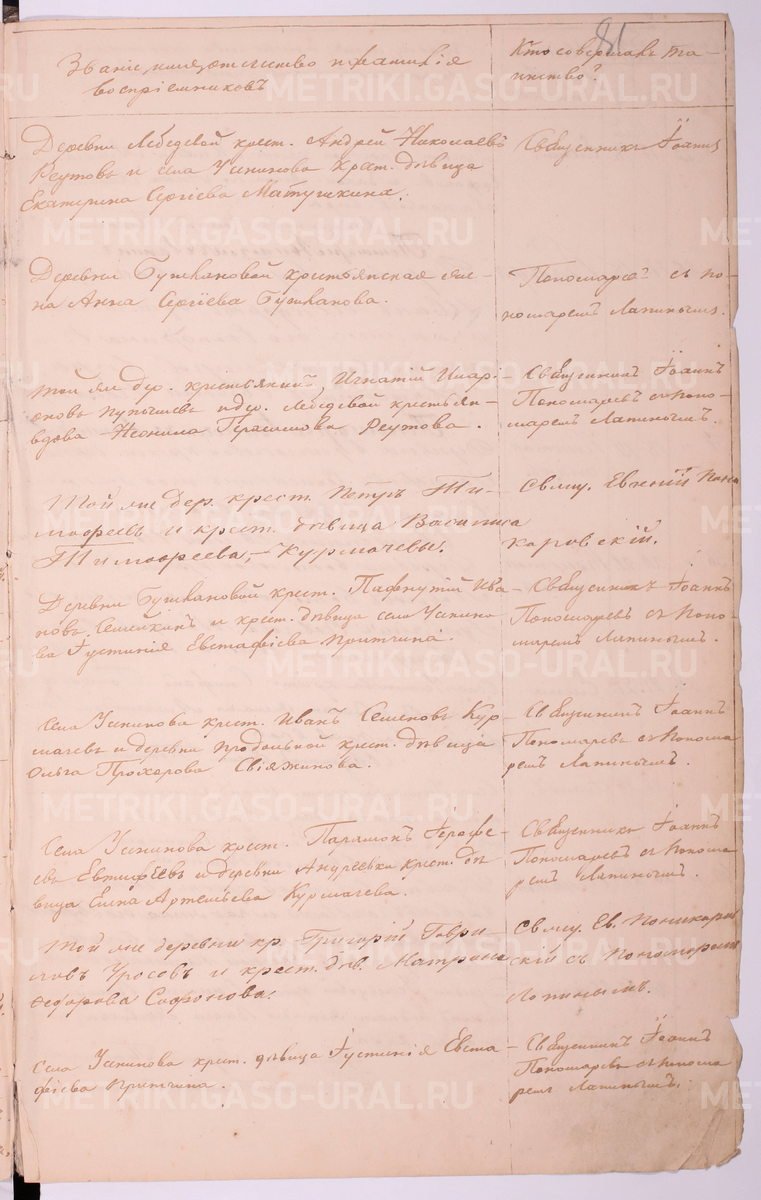 81
Званіе, имя, отчество и фамилія
воспріемниковъ
Кто совершалъ та-
инство?
Деревни Лебедевой крест. Андрей Николаевъ
Реутовъ и села Усниинова крест. дѣвица
Екатерина Сергіева Матушкина.
Священникъ Іоаннъ
Деревни Бушлановой крестьянская же-
на Анна Сергіева Бушланова.
Пономаревъ съ по-
номаремъ Лапинымъ.
Той же дер. крестьянинъ, Игнатій Илар-
іоновъ Пупышевъ и дер. Лебедевой крестьян.
вдова Неонила Герасимова Реутова.
Священникъ Іоаннъ
Пономаревъ съ поно-
маремъ Лапинымъ.
Той же дер. крест. Петръ Ти-
мофеевъ и крест. дѣвица Васимиса
Тимофеева, Курмачевы.
Свящ. Евгеній Пони
каровскій.
Деревни Бушлановой крест. Пафнутій Ива-
новъ Семейкинъ и крест. дѣвица села Уснино-
ва Густинія Евстафіева Притчина.
Священникъ Іоаннъ
Пономаревъ съ Поно-
маремъ Лапинымъ.
Села Уснинова крест. Иванъ Семеновъ Кур-
мачевъ и деревни Продольной крест. дѣвица
Ольга Прохорова Свіяжинова.
Священникъ Іоаннъ
Пономаревъ съ Понома
ремъ Лапинымъ.
Села Уснинова крест. Парамонъ Іерофе-
евъ Евтифіевъ и деревни Андреевки крест. дѣ
вица Елена Артемьева Курмачева.
Священникъ Іоаннъ
Пономаревъ съ Понома
ремъ Лапинымъ.
Той же деревни кр. Григорій Гаври-
ловъ Уросовъ и крест. дѣв. Матрона
Ѳедорова Сафонова.
Свящ. Ев. Поникаров
скій съ Пономаремъ
Лапинымъ.
Села Уснинова крест. дѣвица Іустинія Евста-
фіева Притчина.
Священникъ Іоаннъ
Пономаревъ съ Понома
ремъ Лапинымъ.
METRIKI.GASO-URAL.RU